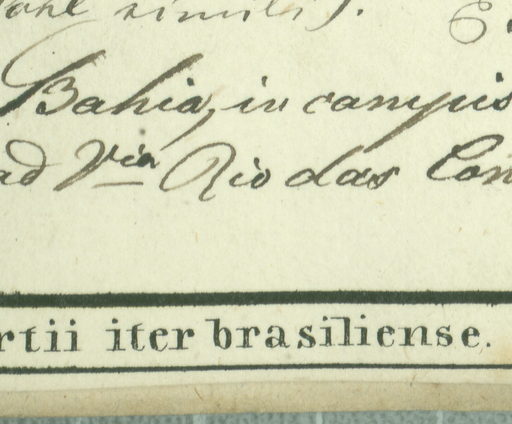 Vahl simili).
Bahia, in campis
ad Via Rio das Con
rtii iter brasiliense.